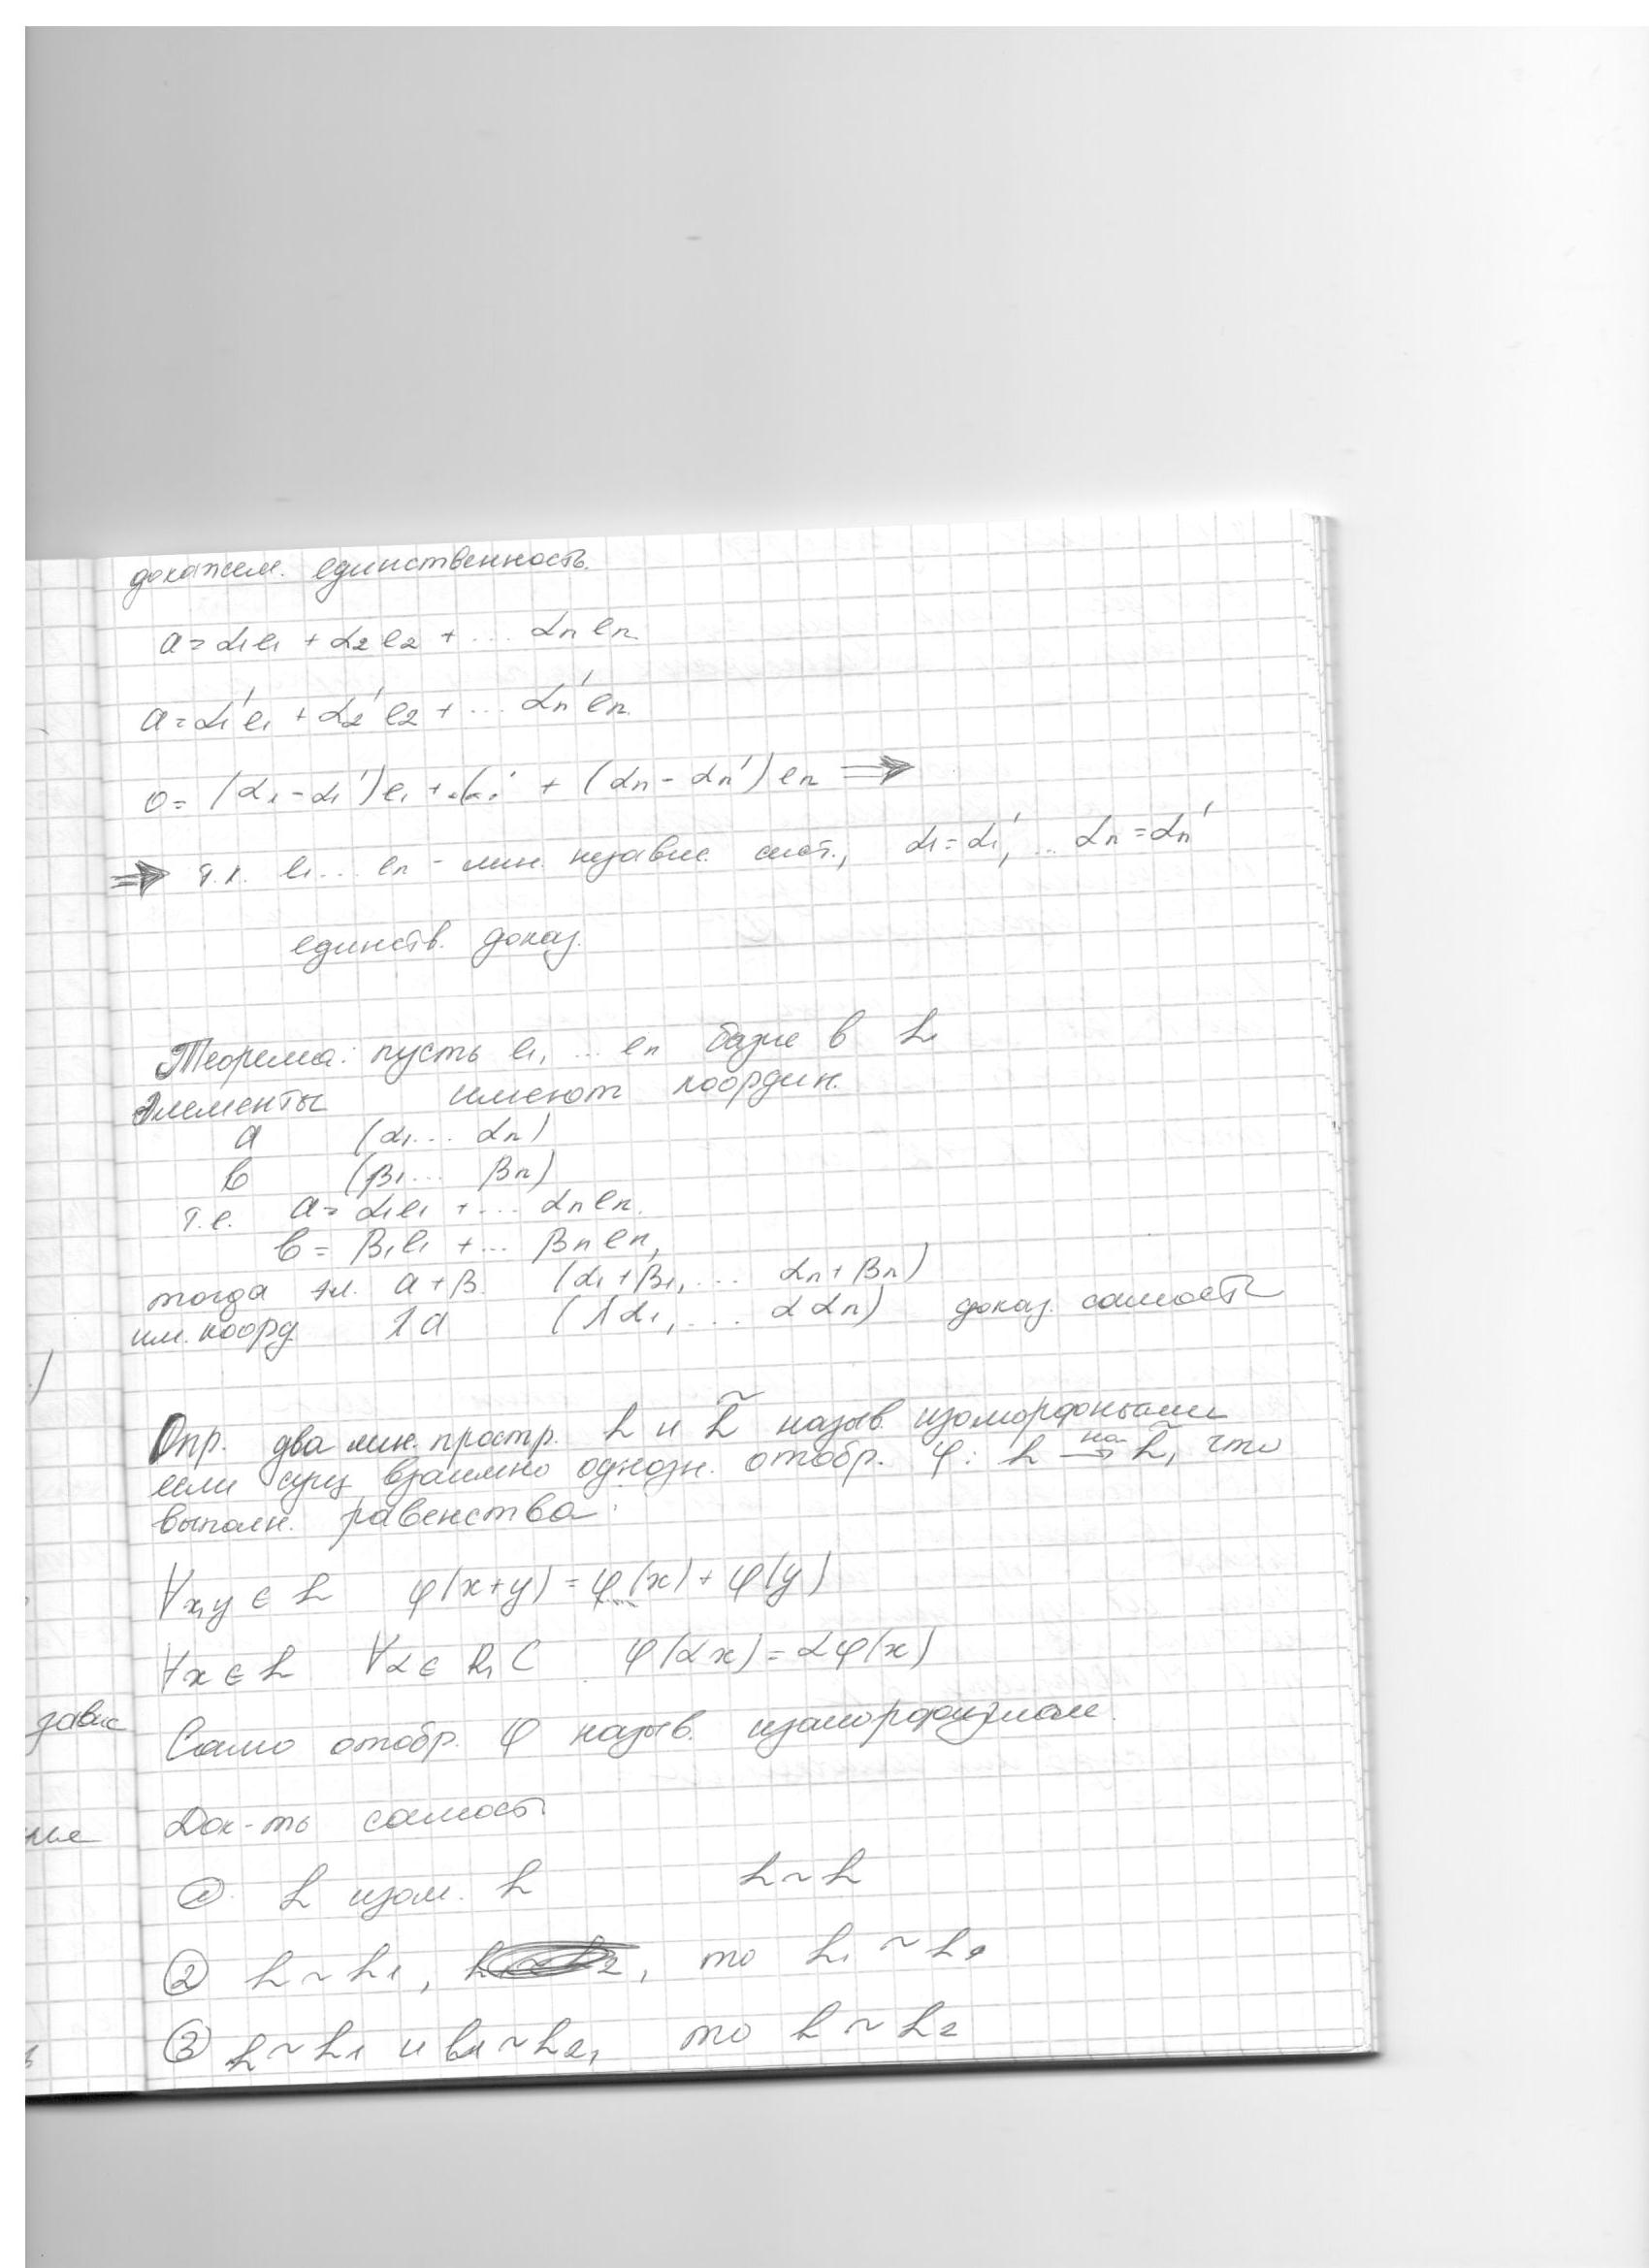 докажем. единственность.
a = α₁e₁ + α₂e₂ + ... αₙeₙ
a = α₁'e₁ + α₂'e₂ + ... αₙ'eₙ
0 = (α₁ - α₁')e₁ + ... + (αₙ - αₙ')eₙ ⇒
⇒ т.к. e₁ ... eₙ - лин. независ. сист., α₁ = α₁', ... αₙ = αₙ'
единств. доказ.
Теорема: пусть e₁, ... eₙ базис в L
Элементы имеют координ.
a (α₁ ... αₙ)
b (β₁ ... βₙ)
т.е. a = α₁e₁ + ... αₙeₙ.
b = β₁e₁ + ... βₙeₙ,
тогда эл. a + β (α₁ + β₁, ... αₙ + βₙ)
им. коорд. λa (λα₁, ... ααₙ) доказ. самост
Опр. два лин. простр. L и L̃ назыв. изоморфными
если сущ взаимно однозн. отобр. φ: L →на L̃, что
выполн. равенства:
∀x,y ∈ L φ(x+y) = φ(x) + φ(y)
∀x ∈ L ∀α ∈ R, C φ(αx) = αφ(x)
Само отобр. φ назыв. изоморфизмом.
Док-ть самост
① L изом. L L ~ L
② L ~ L₁, то L₁ ~ L
③ L ~ L₁ и L₁ ~ L₂, то L ~ L₂
завис